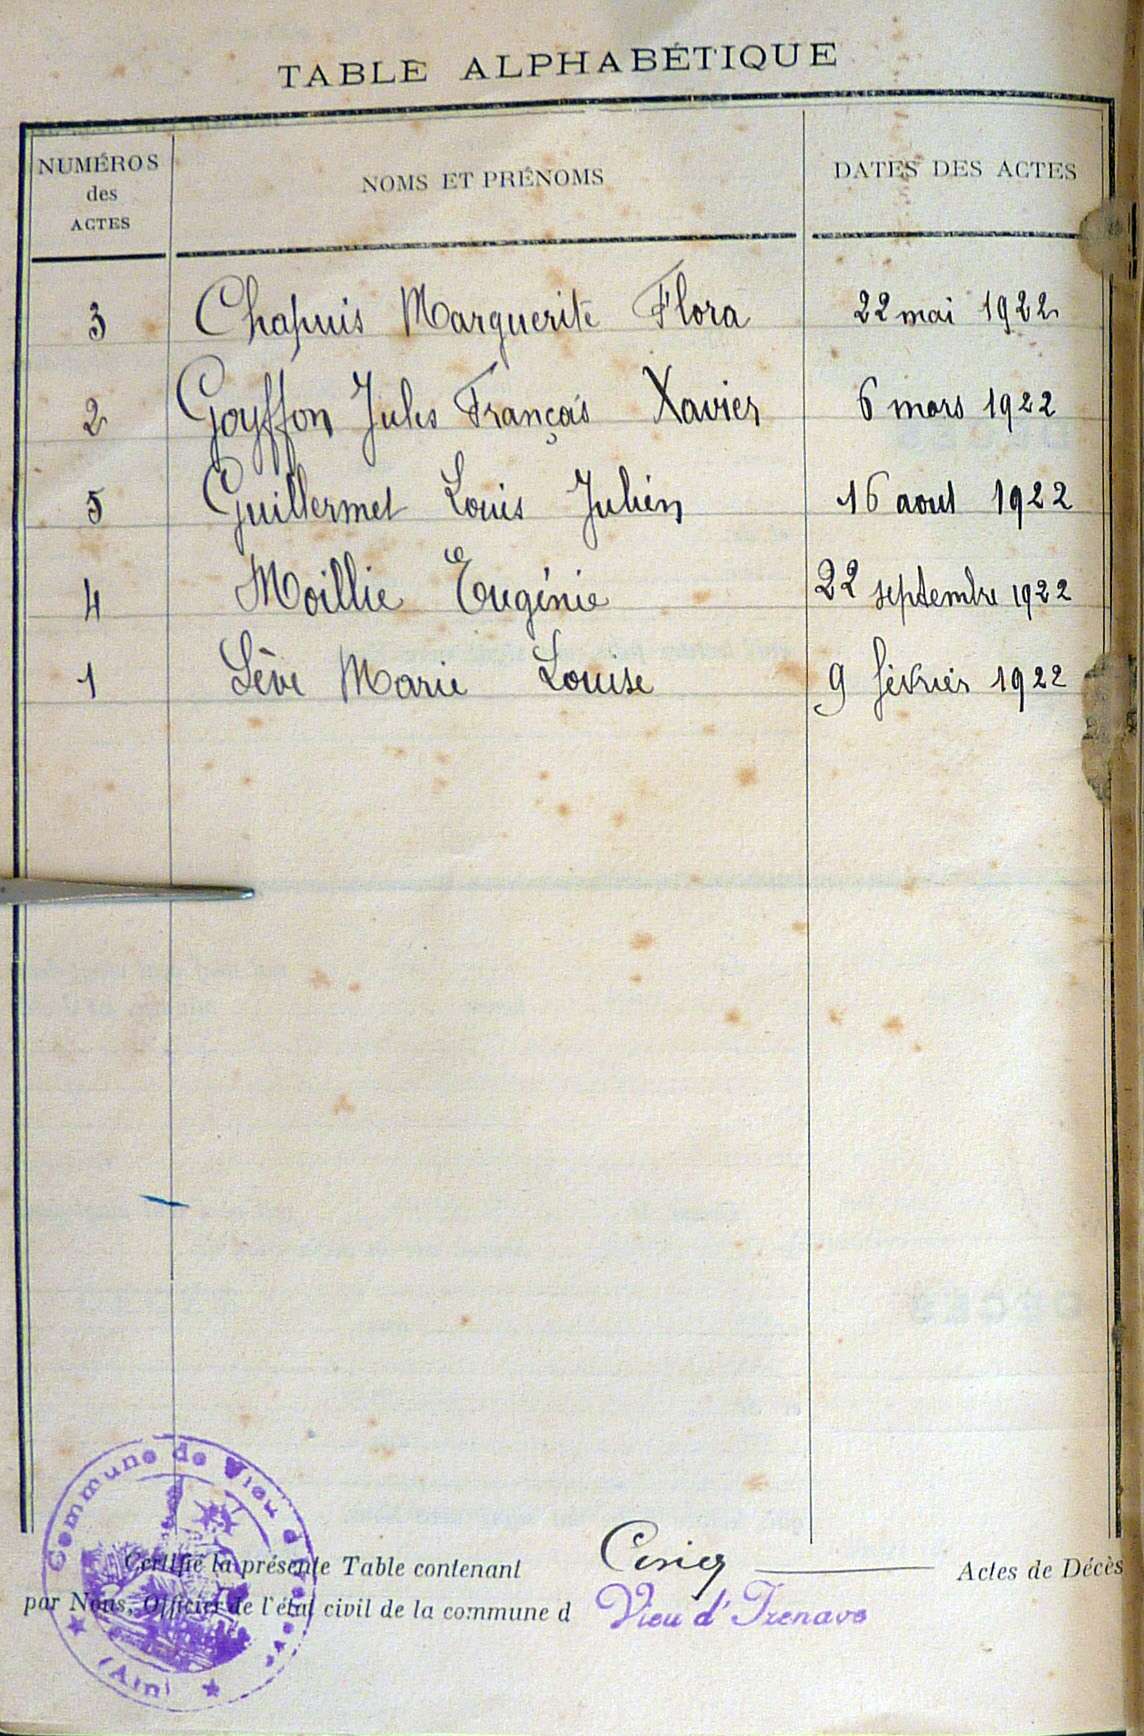 TABLE ALPHABÉTIQUE
NUMÉROS
des
ACTES
NOMS ET PRÉNOMS
DATES DES ACTES
3 Chapuis Marguerite Flora 22 mai 1922
2 Goyffon Jules François Xavier 6 mars 1922
5 Guillermet Louis Julien 16 aout 1922
4 Moillie Eugénie 22 septembre 1922
1 Sève Marie Louise 9 février 1922
Certifié la présente Table contenant Cinq Actes de Décès
par Nous, Officier de l'état civil de la commune d Vieu d'Izenave
Commune de Vieu d'Izenave
(Ain)